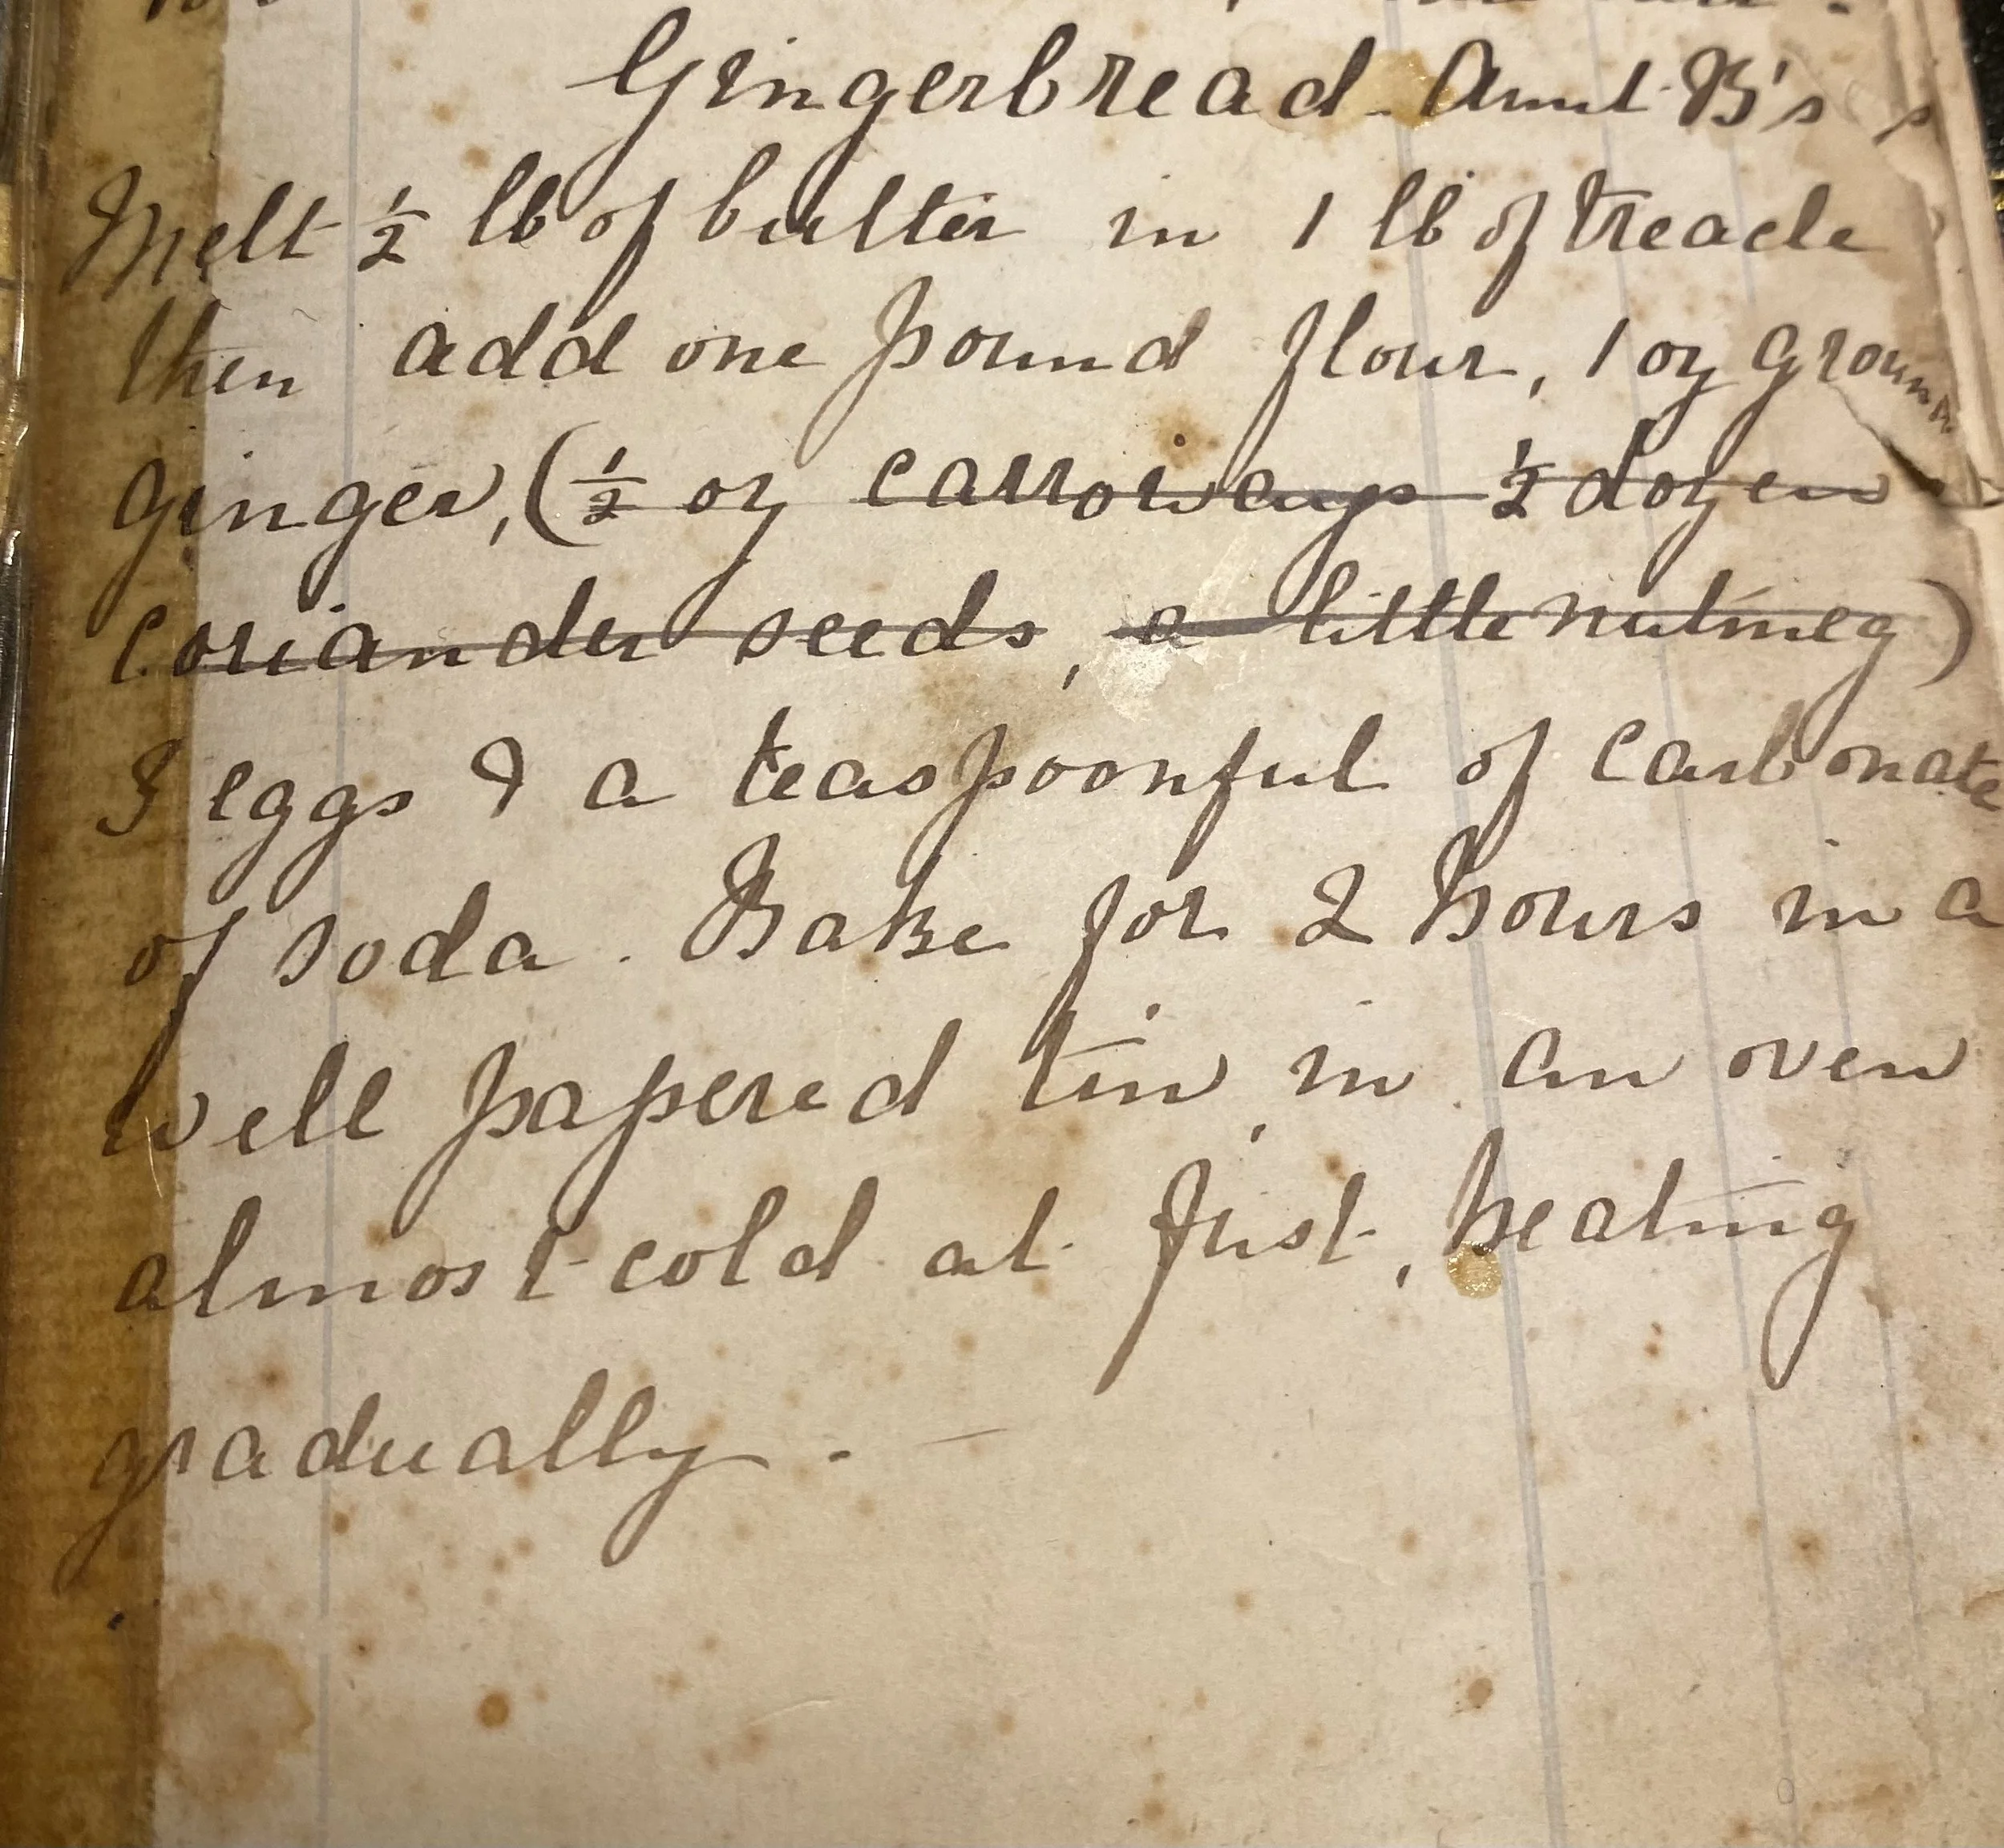 Gingerbread - Aunt B's
Melt ½ lb of butter in 1 lb of treacle
then add one pound flour, 1 oz ground
ginger, (½ oz carroways ½ dozen
coriander seeds, a little nutmeg)
3 eggs & a teaspoonful of carbonate
of soda. Bake for 2 hours in a
well papered tin, in an oven
almost cold at first, heating
gradually. -